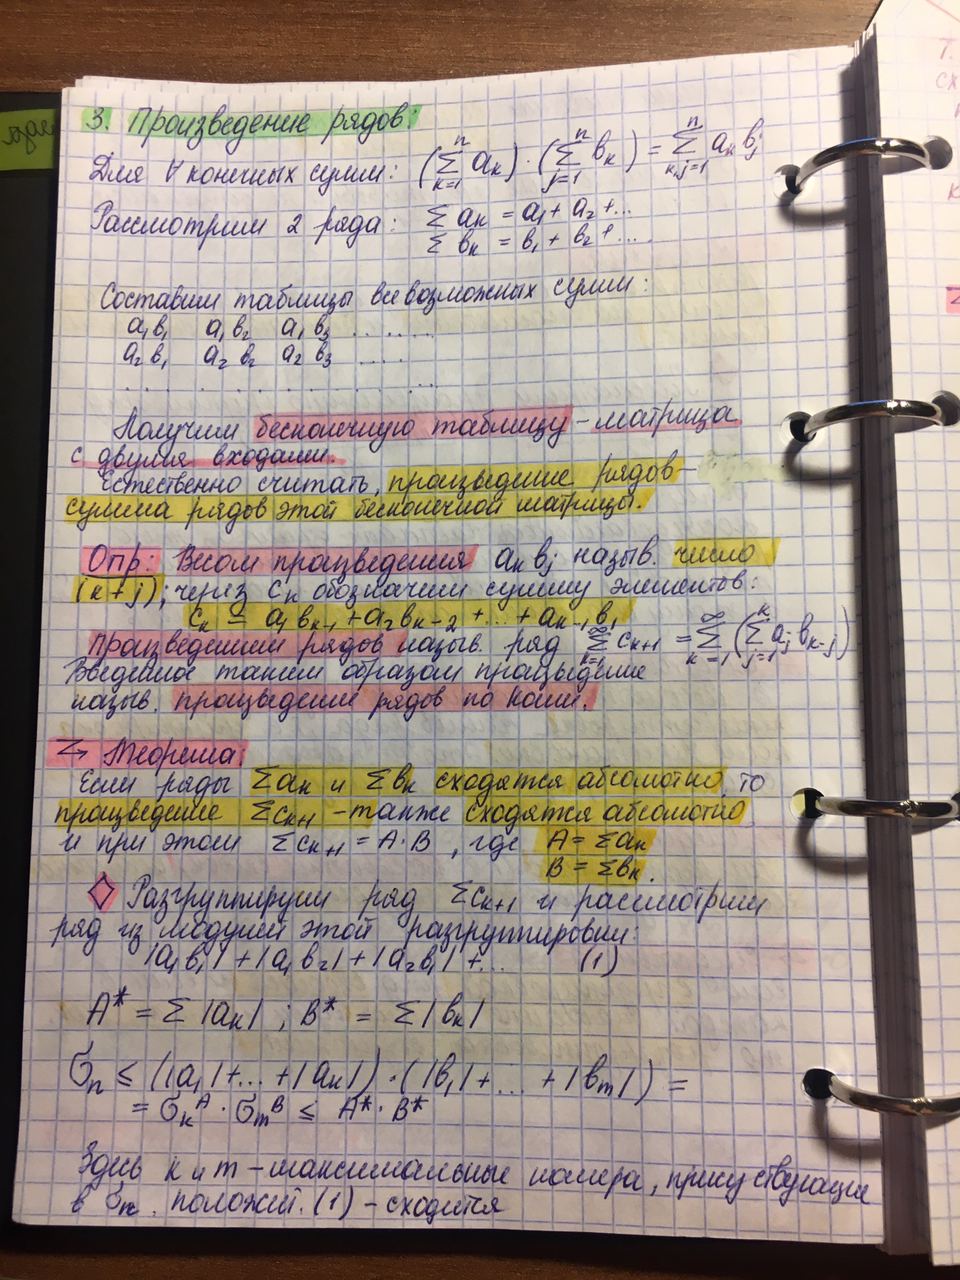 3. Произведение рядов:
Для ∀ конечных сумм: (∑ₖ₌₁ⁿ aₖ) · (∑ⱼ₌₁ⁿ bₖ) = ∑ₖ,ⱼ₌₁ⁿ aₖ bⱼ
Рассмотрим 2 ряда: ∑ aₖ = a₁ + a₂ + ...
∑ bₖ = b₁ + b₂ + ...
Составим таблицы всевозможных сумм:
a₁b₁ a₁b₂ a₁b₃ . . . . . .
a₂b₁ a₂b₂ a₂b₃ . . . . .
. . . . . . . . . . .
Получим бесконечную таблицу – матрица
с двумя входами.
Естественно считать, произведение рядов –
сумма рядов этой бесконечной матрицы.
Опр: Весом произведения aₖ bⱼ назыв. число
(k+j); через Cₖ обозначим сумму элементов:
Cₖ = a₁bₖ₋₁ + a₂bₖ₋₂ + ... + aₖ₋₁b₁
Произведением рядов назыв. ряд ∑ₖ₌₁^∞ cₖ₊₁ = ∑ₖ₌₁^∞ (∑ⱼ₌₁ᵏ aⱼ bₖ₋ⱼ)
Введенное таким образом произведение
назыв. произведение рядов по Коши.
Теорема:
Если ряды ∑aₖ и ∑bₖ сходятся абсолютно, то
произведение ∑cₖ₊₁ – также сходятся абсолютно
и при этом ∑cₖ₊₁ = A·B, где A = ∑aₖ
B = ∑bₖ.
◇ Разгруппируем ряд ∑cₖ₊₁ и рассмотрим
ряд из модулей этой разгруппировки:
|a₁b₁| + |a₁b₂| + |a₂b₁| + ... (1)
A* = ∑ |aₖ| ; B* = ∑ |bₖ|
σₙ ≤ (|a₁| + ... + |aₖ|) · (|b₁| + ... + |bₘ|) =
= σₖᴬ · σₘᴮ ≤ A* · B*
Здесь k и m – максимальные номера, присутствующие
в σₙ. положит. (1) – сходится